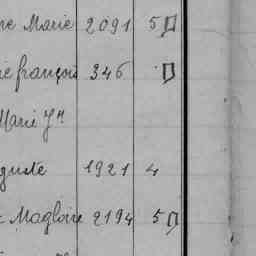 ne Marie 2091 5
ie françois 346
Marie Jn
guste 1921 4
Magloire 2194 5